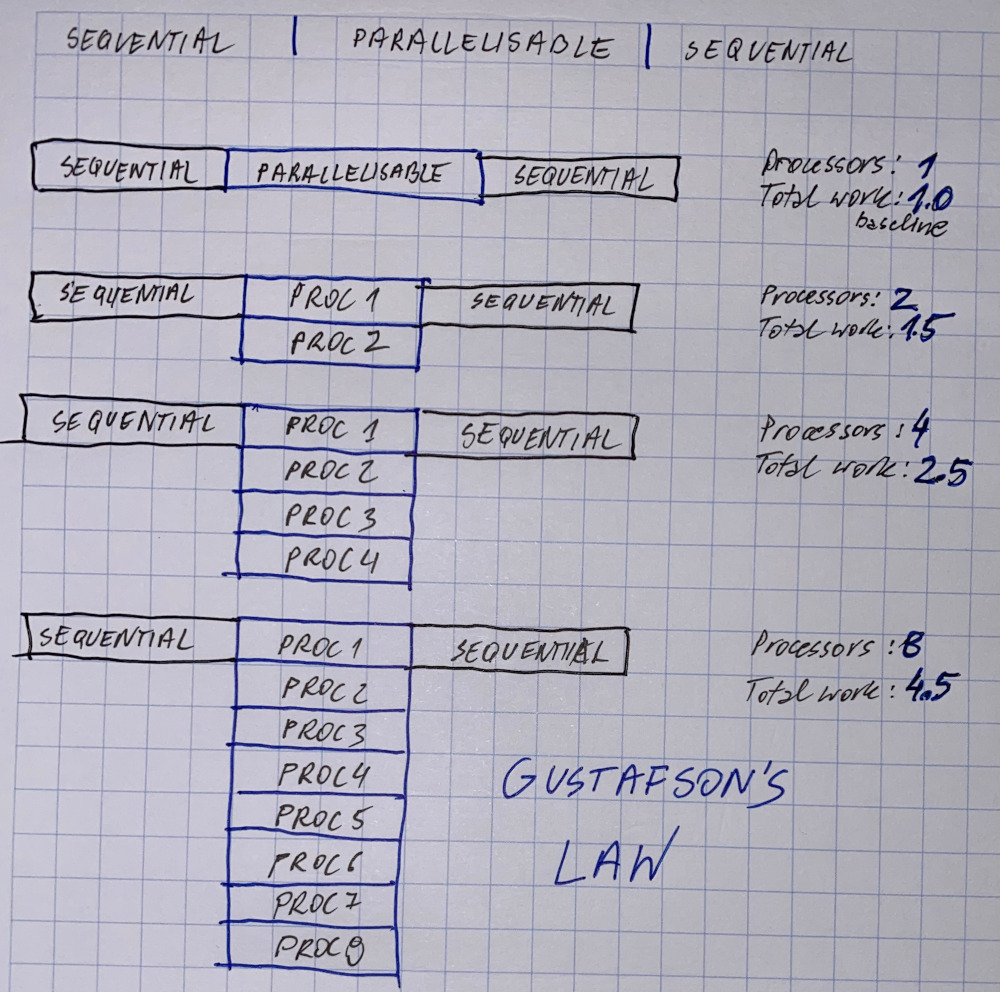 SEQUENTIAL | PARALLELISABLE | SEQUENTIAL
SEQUENTIAL PARALLELISABLE SEQUENTIAL
Processors: 1
Total work: 1.0
baseline
SEQUENTIAL PROC 1 SEQUENTIAL
PROC 2
Processors: 2
Total work: 1.5
SEQUENTIAL PROC 1 SEQUENTIAL
PROC 2
PROC 3
PROC 4
Processors: 4
Total work: 2.5
SEQUENTIAL PROC 1 SEQUENTIAL
PROC 2
PROC 3
PROC 4
PROC 5
PROC 6
PROC 7
PROC 8
Processors: 8
Total work: 4.5
GUSTAFSON'S
LAW